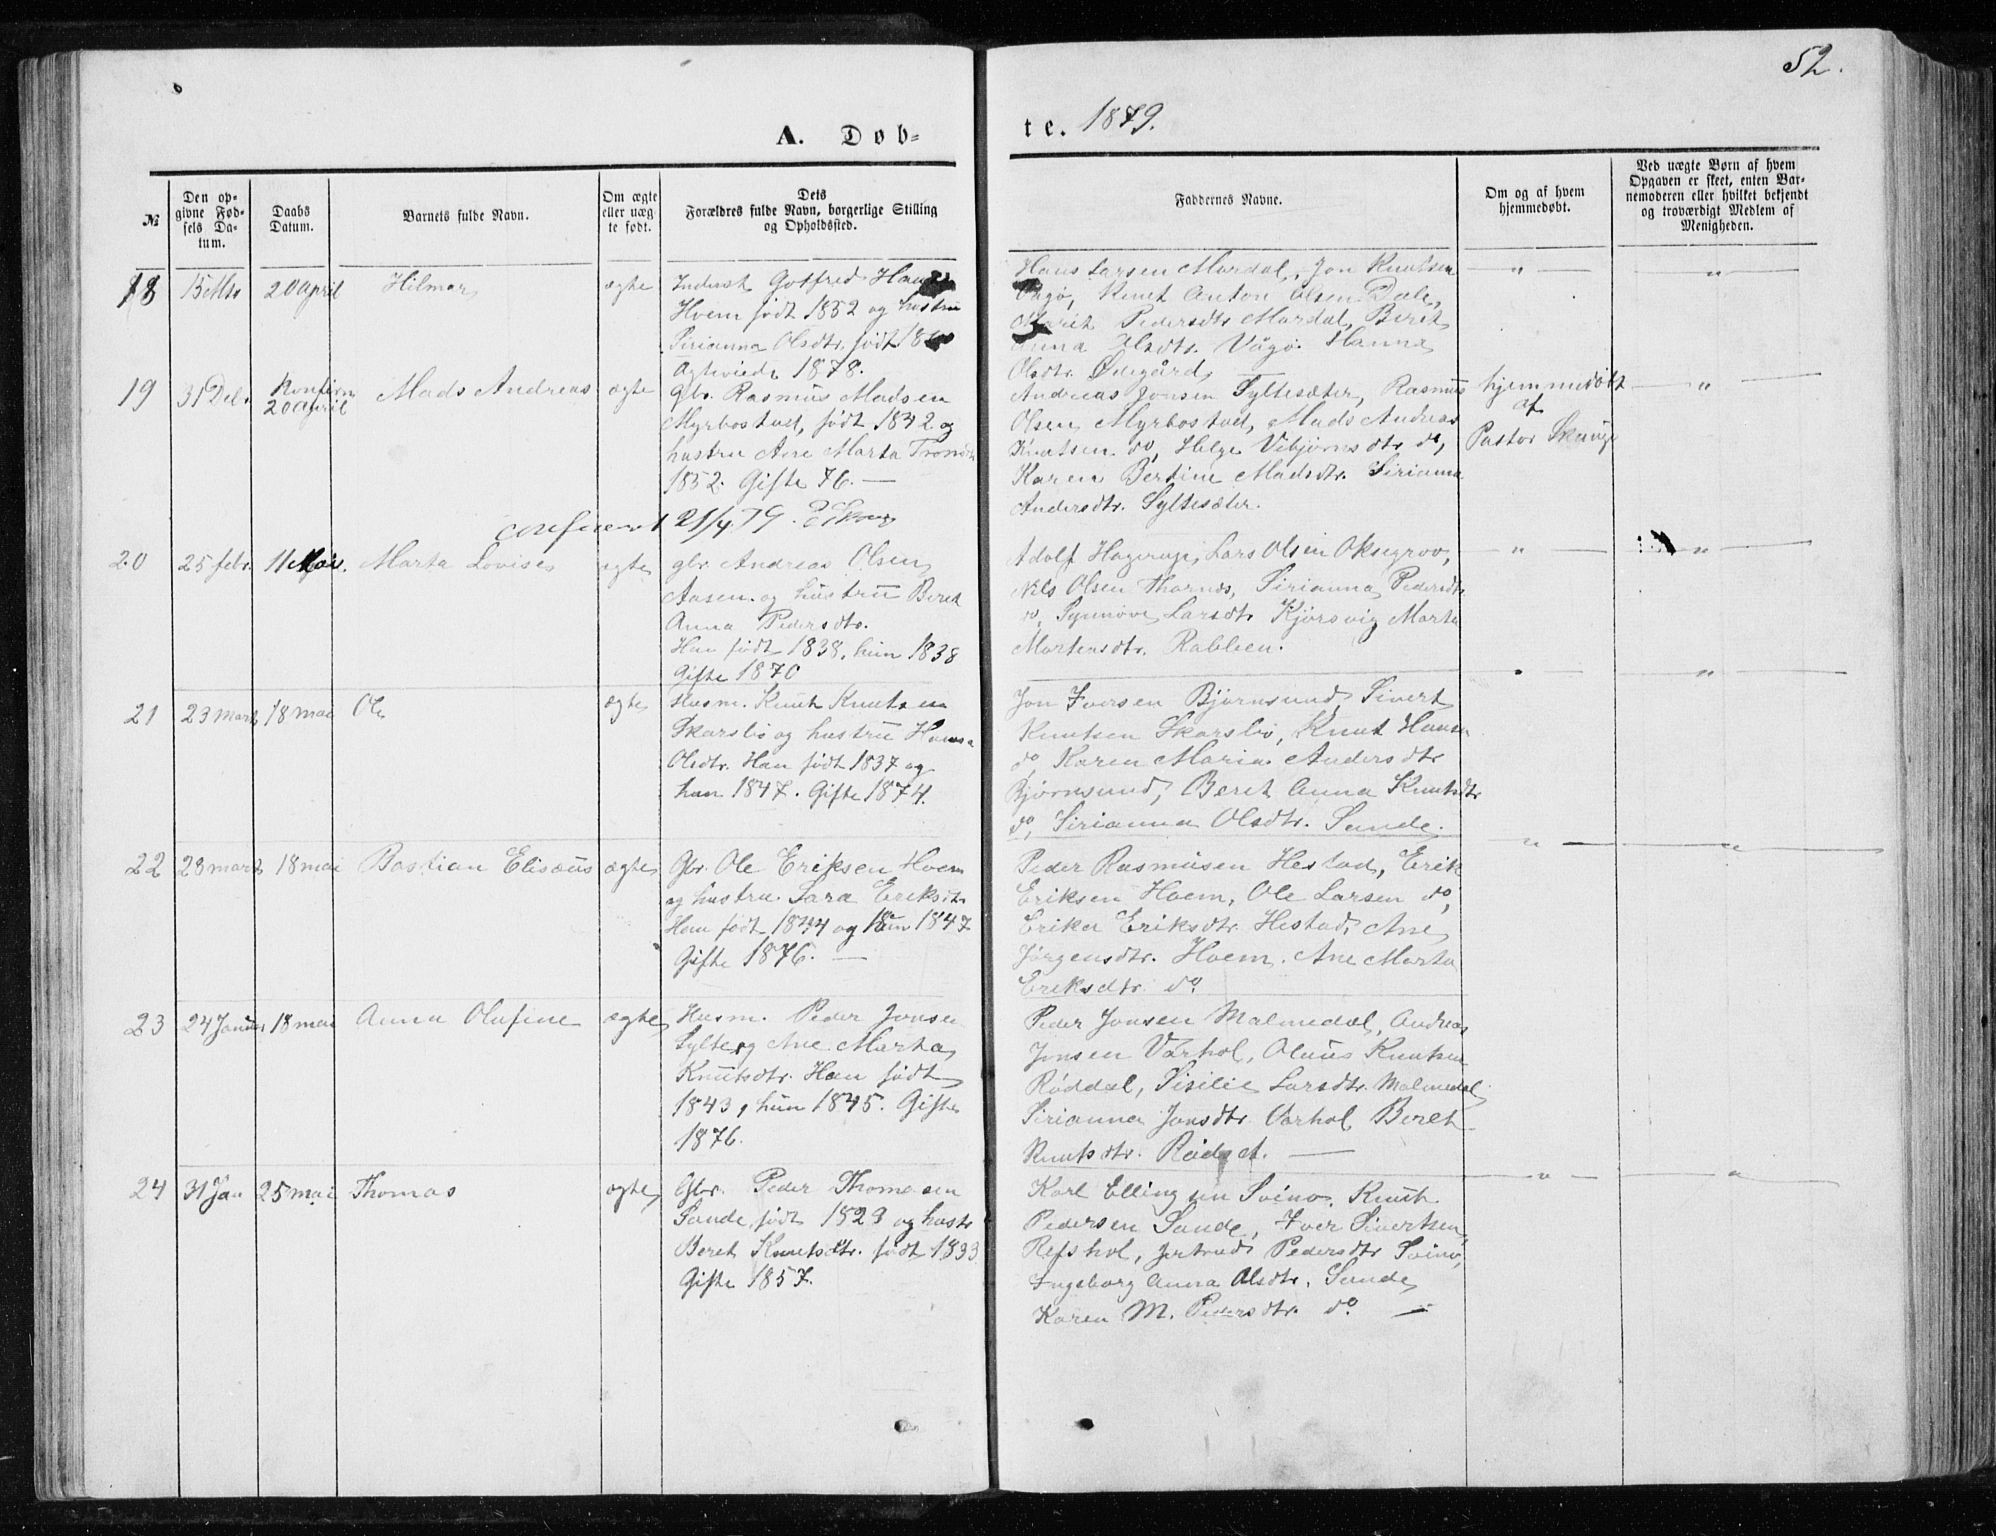 52.
A. Døb-
te. 1879.
№
Den op-
givne Fød-
sels Da-
tum.
Daabs
Datum.
Barnets fulde Navn.
Om ægte
eller uæg-
te født.
Dets
Forældres fulde Navn, borgerlige Stilling
og Opholdssted.
Faddernes Navne.
Om og af hvem
hjemmedøbt.
Ved uægte Børn af hvem
Opgaven er skeet, enten Bar-
nemoderen eller hvilket bekjendt
og troværdigt Medlem af
Menigheden.
18
20 April
Hilmar
ægte
Inderst Gotfred
Hoem født 1852 og hustru
Sirianna Olsdtr. født
Ægteviede 1878.
Hans Larsen Mordal, Jon Knutsen
Vågø, Knut Anton Olsen Dale,
Marit Pedersdtr Mordal, Beret
Anna Olsdtr. Vågø. Hanna
Olsdtr. Ødegård.
19
31 Dec.
Konfirm
20 April
Mads Andreas
ægte
gbr. Rasmus Madsen
Myrbostad, født 1842 og
hustru Ane Marta
1852. Gifte 76. —
Andreas Jonsen Syltesæter, Rasmus
Olsen Myrbostad, Mads Andreas
Knutsen do, Helge Vibjørnsdtr do,
Karen Bertine Madsdtr. Sirianna
Andersdtr. Syltesæter.
hjemmedøbt
af
Pastor
21/4 79.
20
25 febr.
11 Mai.
Marta Lovise
ægte
gbr. Andreas Olsen
Aasen og hustru Beret
Anna Pedersdtr.
Han født 1838, hun 1838
Gifte 1870
Adolf Hagerup, Lars Olsen Oksegrov,
Nils Olsen Thornes, Sirianna Pedersdtr
do, Synnøve Larsdtr Kjørsvig Marta
Mortensdtr. Rabben.
21
23 marts
18 mai
Ole
ægte
Husm. Knut Knutsen
Skarslio og hustru Hanna
Olsdtr. Han født 1837 og
hun 1847. Gifte 1874.
Jon Iversen Bjørnsund, Sivert
Knutsen Skarslio, Knut Hansen
do Karen Maria Andersdtr
Bjørnsund, Beret Anna Knutsdtr
do, Sirianna Olsdtr. Sunde.
22
28 marts
18 mai
Bastian Elisæus
ægte
Gbr. Ole Eriksen Hoem
og hustru Sara Eriksdtr.
Han født 1844 og hun 1847
Gifte 1876. —
Peder Rasmusen Hestad, Erik
Eriksen Hoem, Ole Larsen do,
Erika Eriksdtr. Hestad, Ane
Jørgensdtr. Hoem. Ane Marta
Eriksdtr. do
23
24 Januar
18 mai
Anna Olufine
ægte
Husm. Peder Jonsen
Sylte og Ane Marta
Knutsdtr. Han født
1843, hun 1845. Gifte
1876.
Peder Jonsen Malmedal, Andreas
Jonsen Varhol, Olaus Knutsen
Røddal, Sisilie Larsdtr. Malmedal
Sirianna Jonsdtr. Varhol, Beret
Knutsdtr. Rødset. —
24
31 Jan
25 mai
Thomas
ægte
Gbr. Peder Thomasen
Sande, født 1829 og hustr
Beret Knutsdtr. født 1833
Gifte 1857.
Karl Ellingsen Svino, Knut
Pedersen Sande, Iver Sivertsen
Refshol, Jertrud Pedersdtr Svino,
Ingeborg Anna Olsdtr. Sande,
Karen M. Pedersdtr. do —